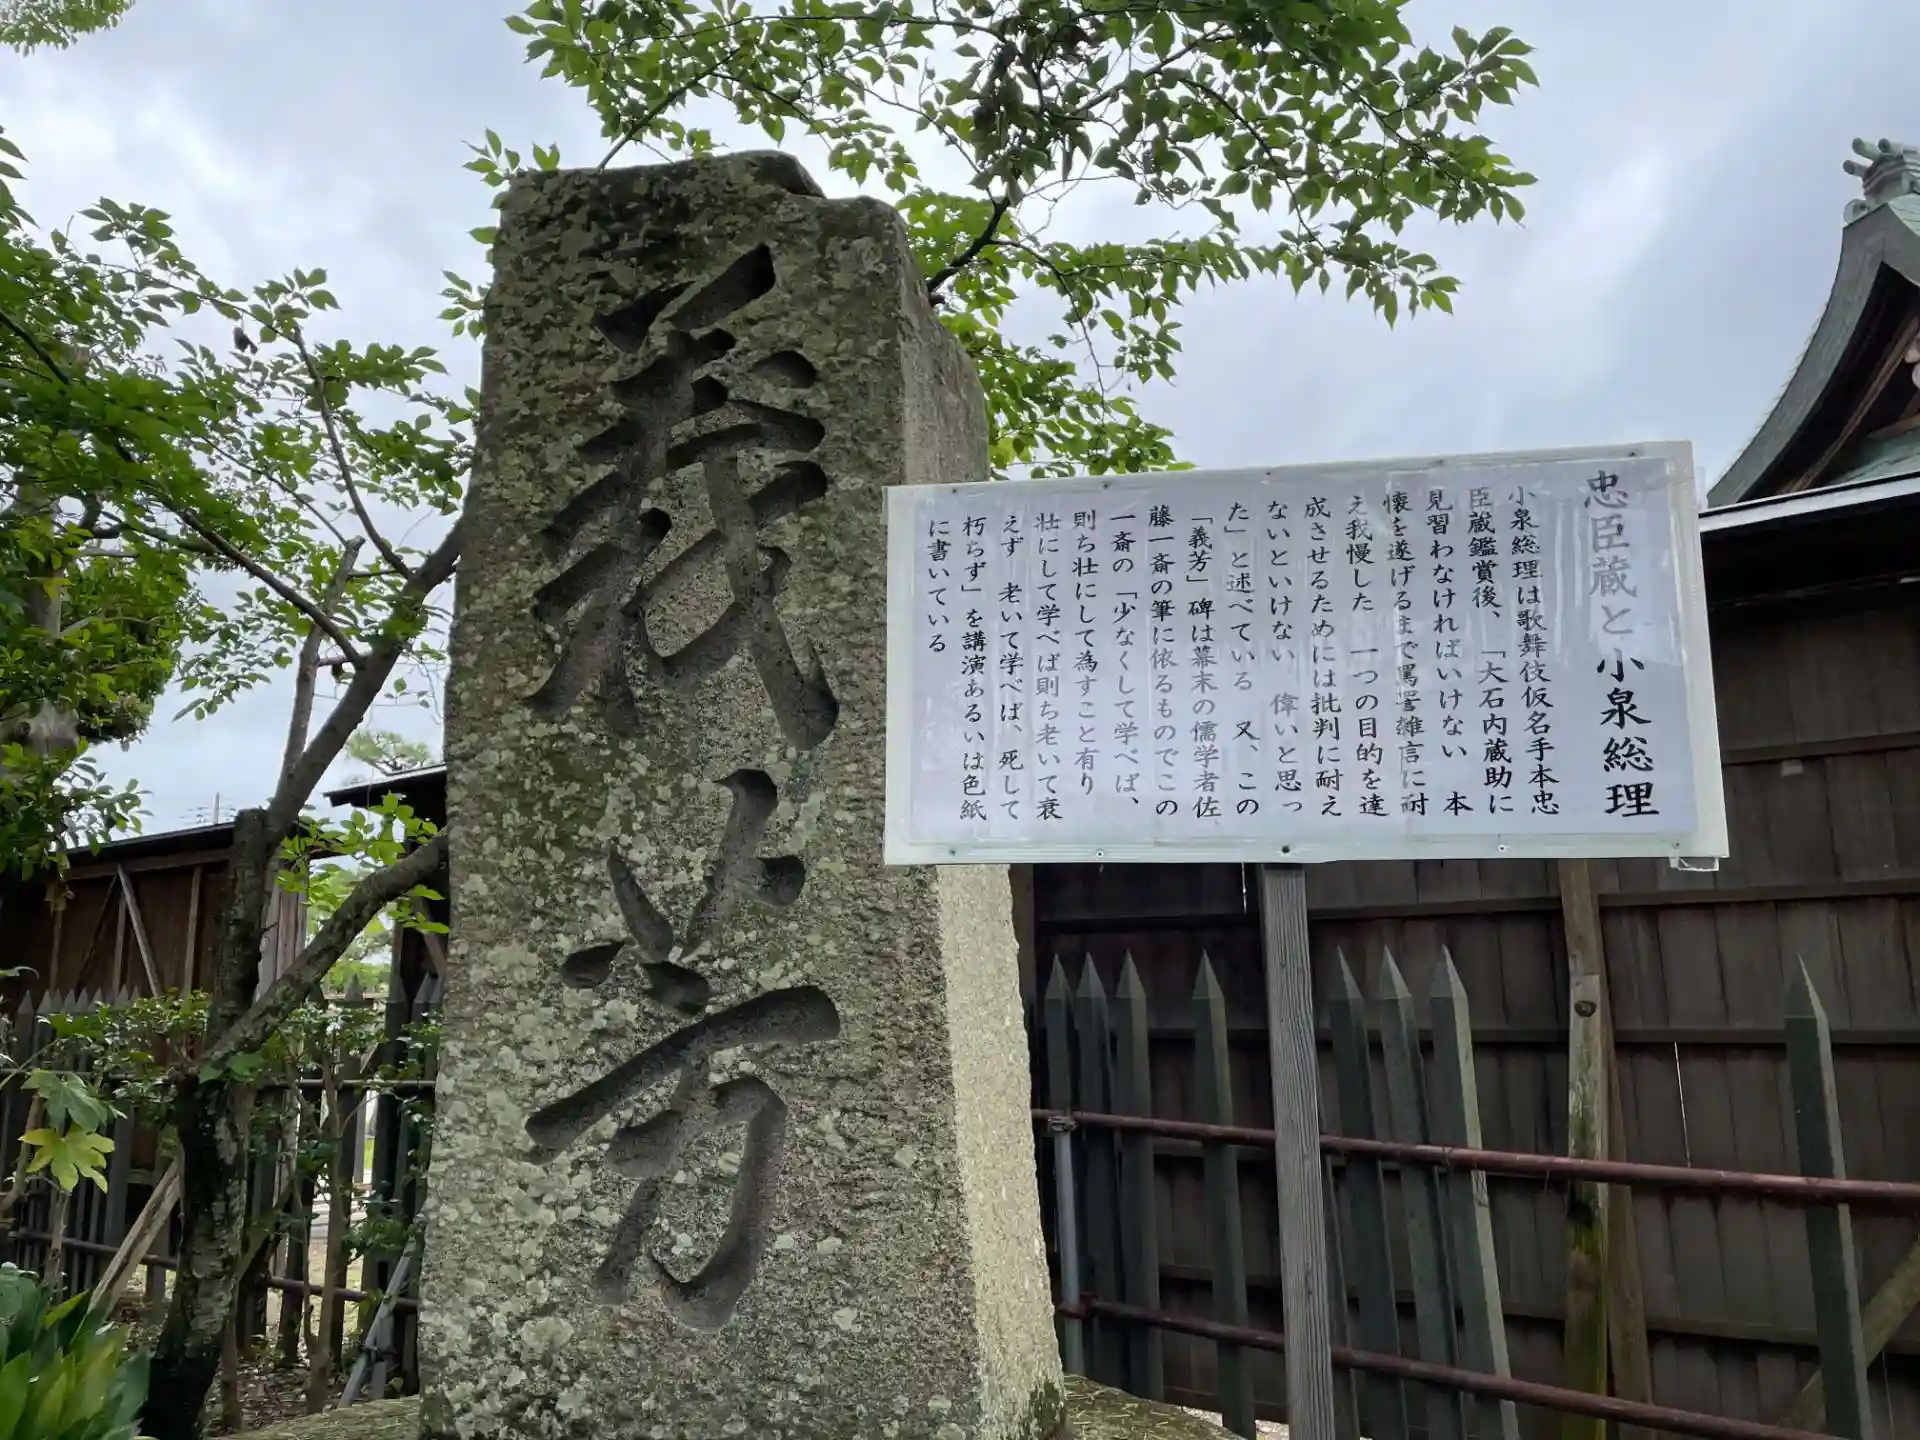 義芳
忠臣蔵と小泉総理
小泉総理は歌舞伎仮名手本忠
臣蔵鑑賞後、「大石内蔵助に
見習わなければいけない　本
懐を遂げるまで罵詈雑言に耐
え我慢した　一つの目的を達
成させるためには批判に耐え
ないといけない　偉いと思っ
た」と述べている　又、この
「義芳」碑は幕末の儒学者佐
藤一斎の筆に依るものでこの
一斎の「少なくして学べば、
則ち壮にして為すこと有り
壮にして学べば則ち老いて衰
えず　老いて学べば、死して
朽ちず」を講演あるいは色紙
に書いている